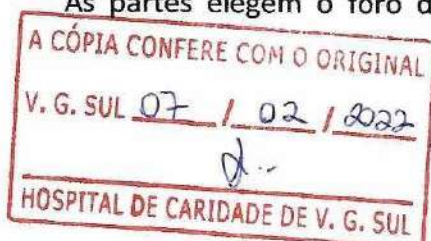 As partes elegem o foro d
A CÓPIA CONFERE COM O ORIGINAL
V. G. SUL 07 / 02 / 2022
HOSPITAL DE CARIDADE DE V. G. SUL